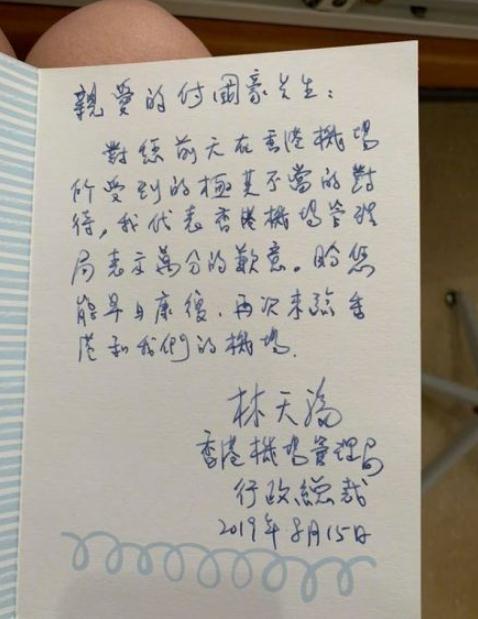 親愛的付國豪先生：
對您前天在香港機場
所受到的極其不當的對
待，我代表香港機場管理
局表示萬分的歉意。盼您
能早日康復，再次來臨香
港和我們的機場.
林天福
香港機場管理局
行政總裁
2019年8月15日